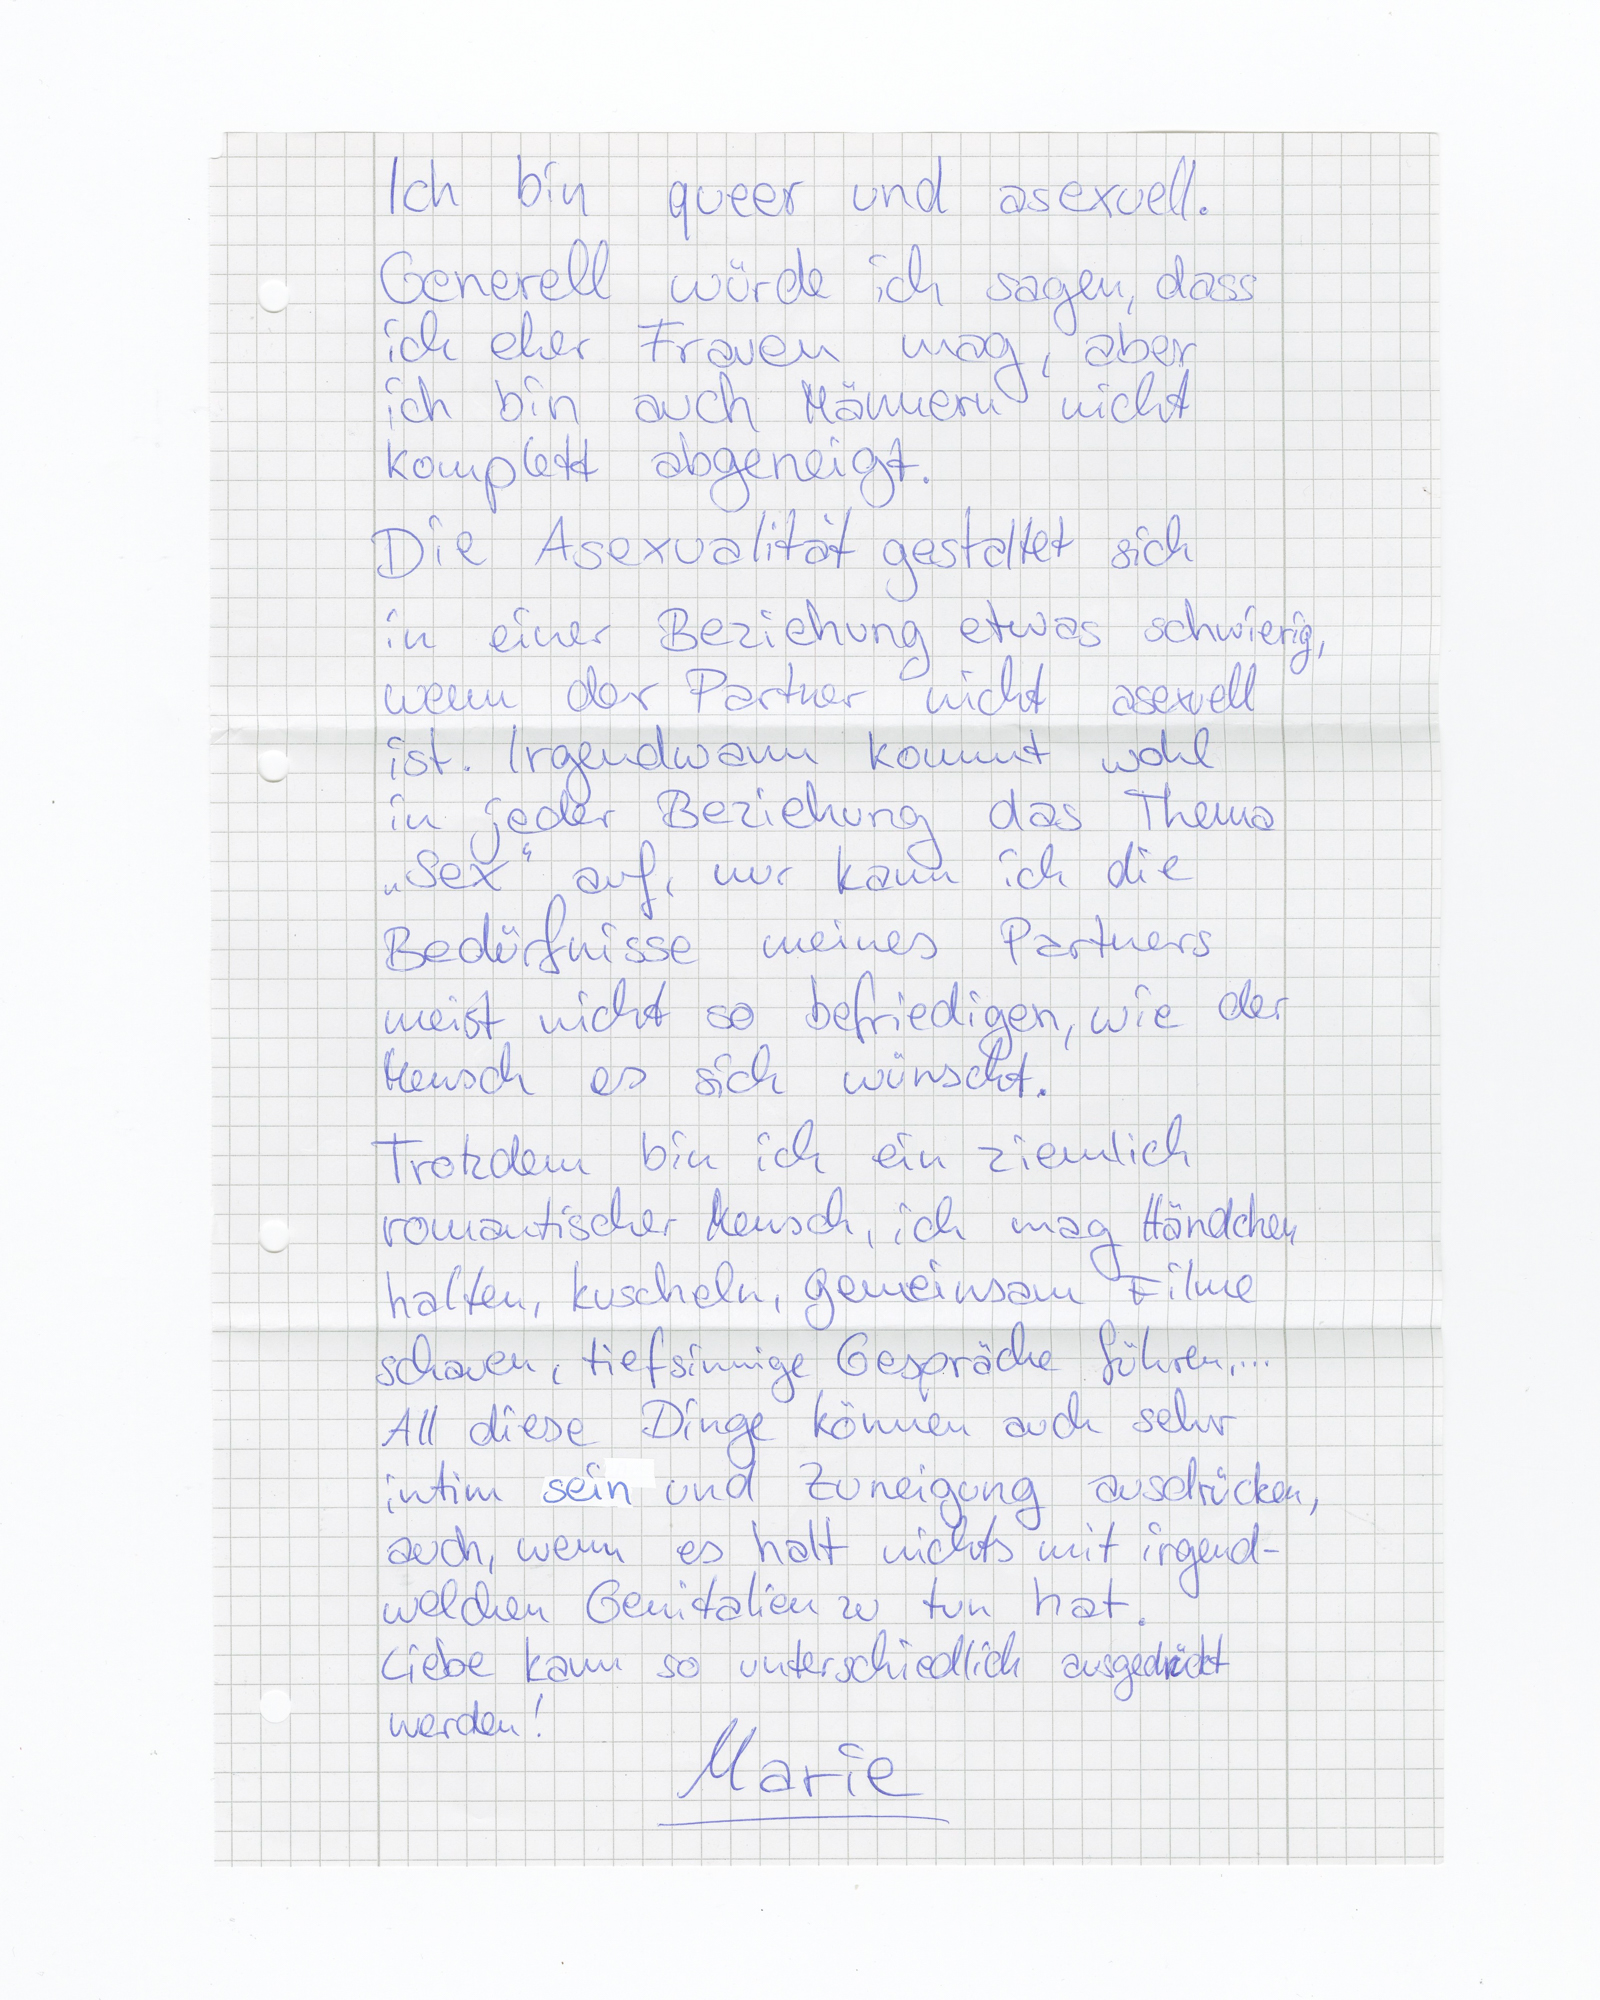 Ich bin queer und asexuell.
Generell würde ich sagen, dass
ich eher Frauen mag, aber
ich bin auch Männern nicht
komplett abgeneigt.
Die Asexualität gestaltet sich
in einer Beziehung etwas schwierig,
wenn der Partner nicht asexuell
ist. Irgendwann kommt wohl
in jeder Beziehung das Thema
„Sex“ auf, nur kann ich die
Bedürfnisse meines Partners
meist nicht so befriedigen, wie der
Mensch es sich wünscht.
Trotzdem bin ich ein ziemlich
romantischer Mensch, ich mag Händchen
halten, kuscheln, gemeinsam Filme
schauen, tiefsinnige Gespräche führen,...
All diese Dinge können auch sehr
intim sein und Zuneigung ausdrücken,
auch, wenn es halt nichts mit irgend-
welchen Genitalien zu tun hat.
Liebe kann so unterschiedlich ausgedrückt
werden!
Marie